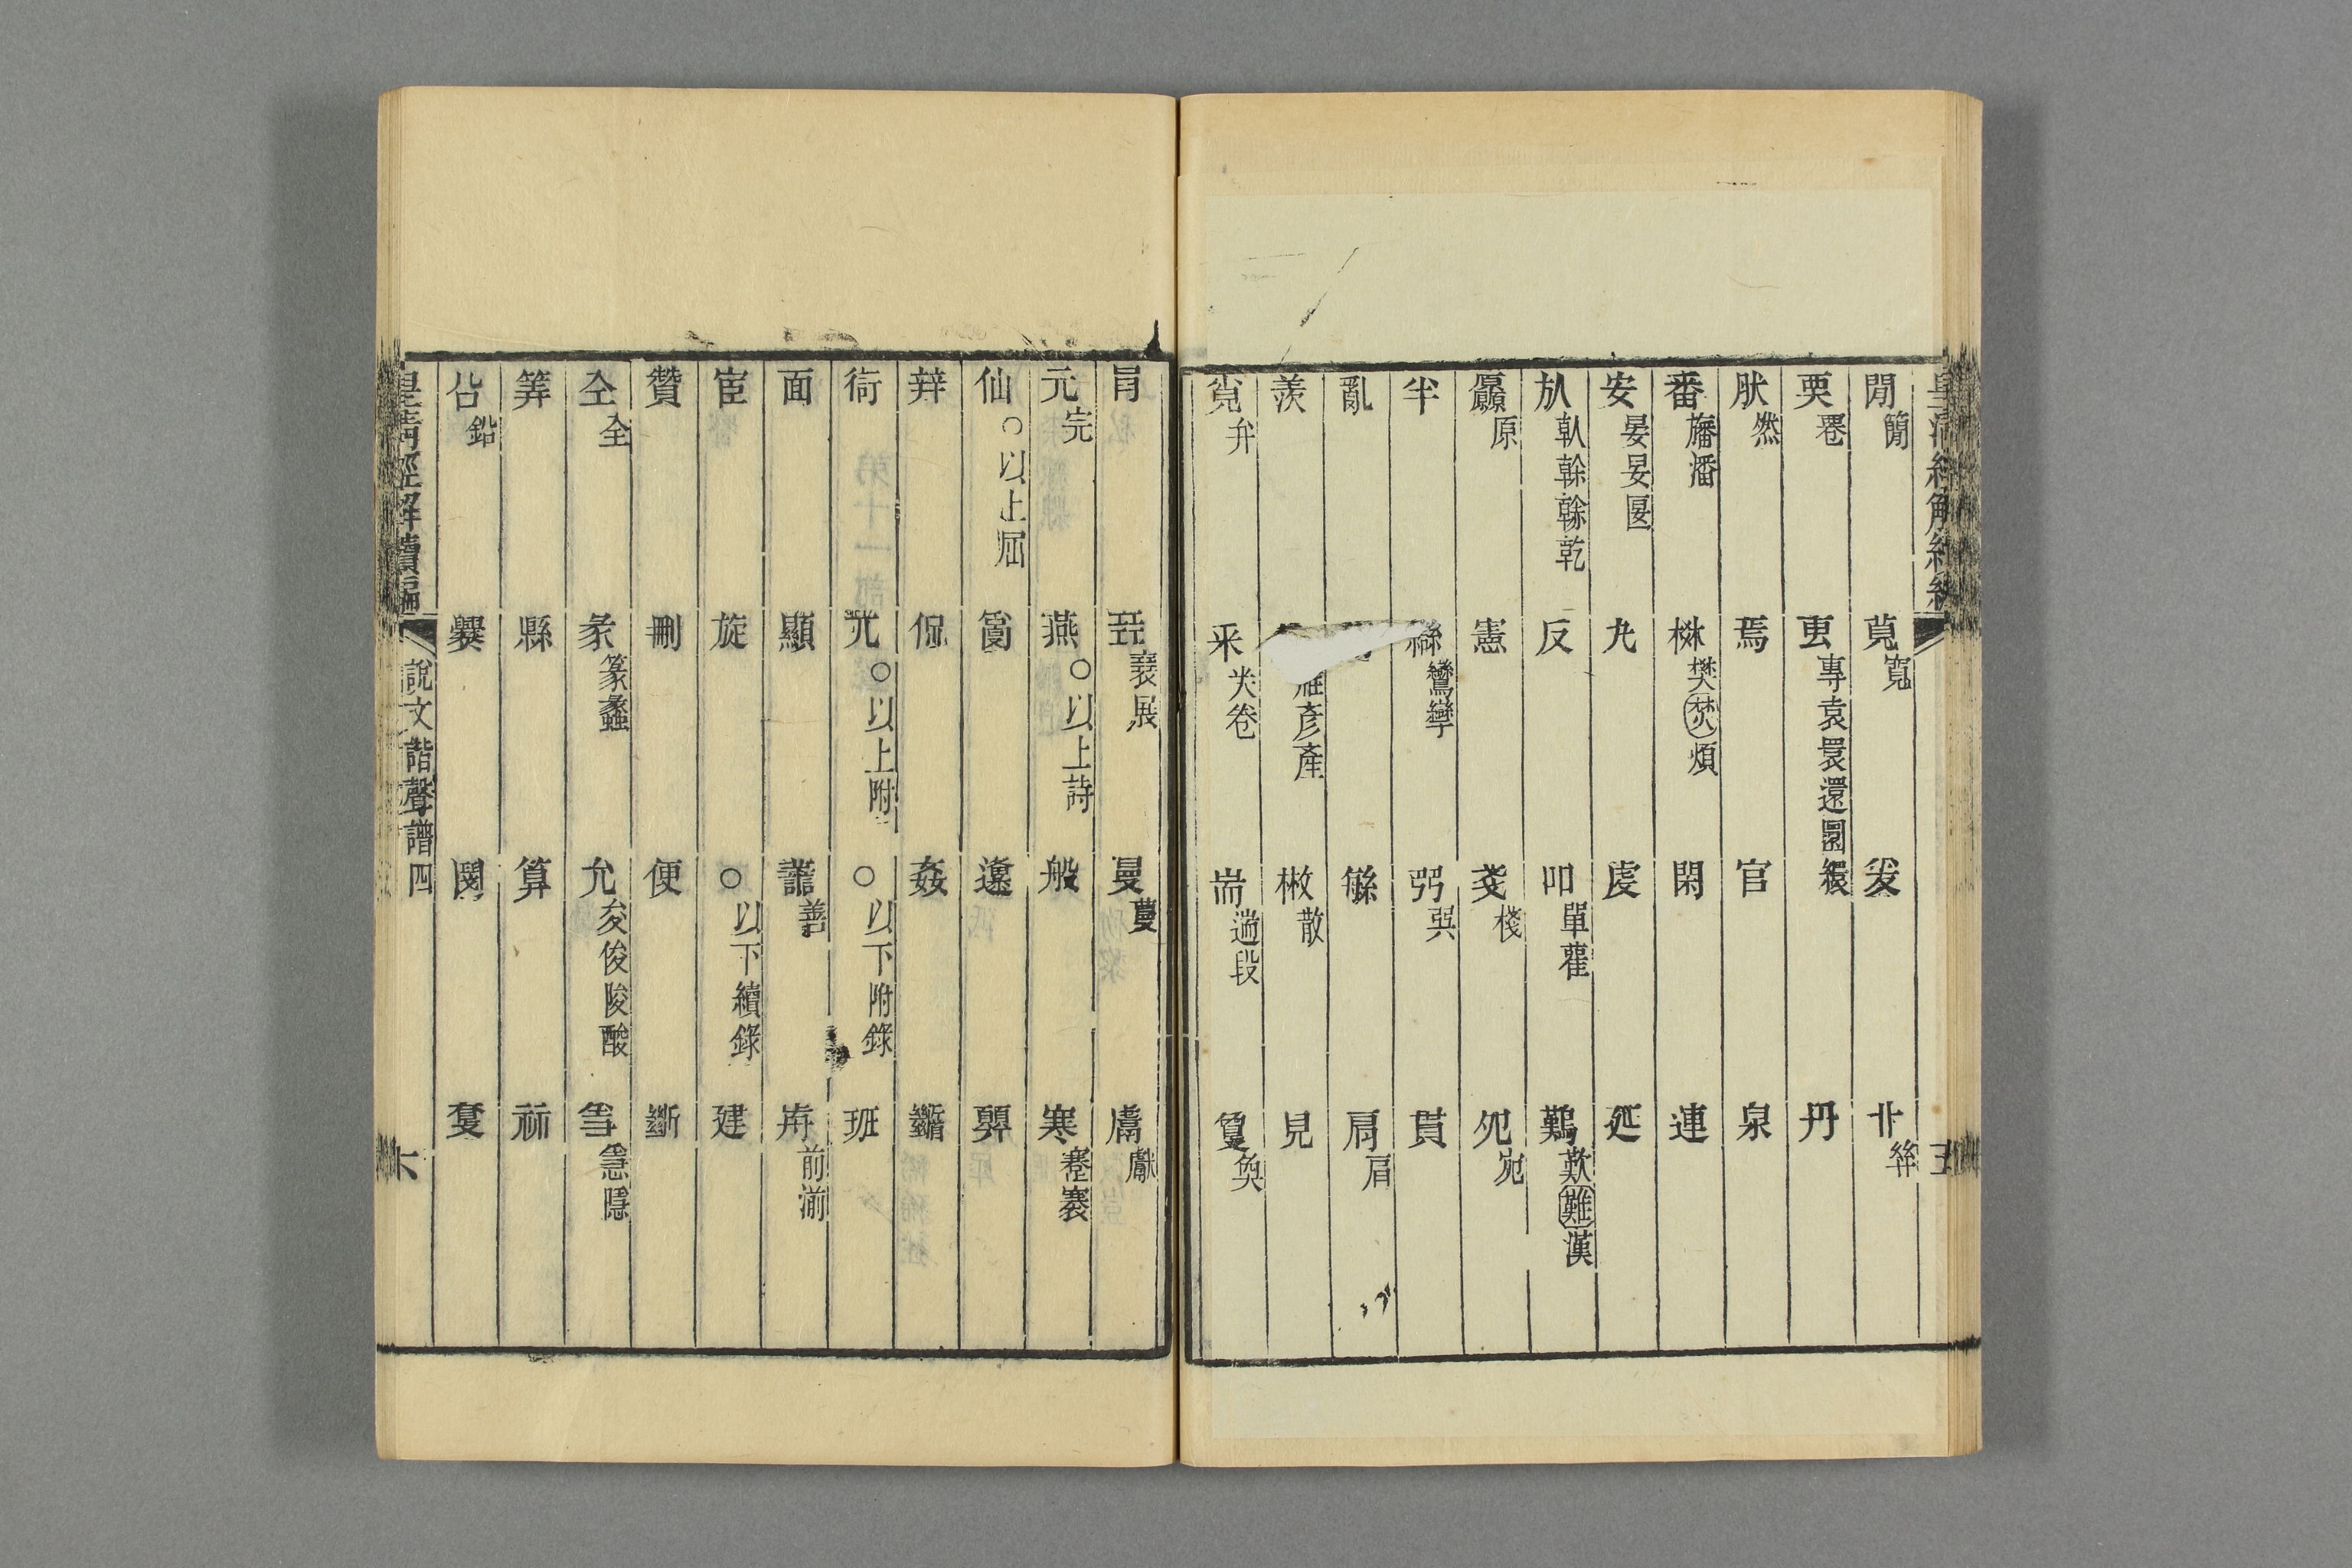 閒簡 莧寬 爰 𠦒䋣
㮚䙴 叀專袁睘還圜繯 丹
肰然 焉 官 泉
番旛潘 棥樊焚煩 閑 連
安晏妟匽 丸 虔 延
㫃倝榦翰乾 反 吅單雚 鷬歎難漢
厵原 憲 戔棧 夗宛
半 䜌鸞孿 弜㢲 貫
亂 緐 肩肩
羨 雁彥產 㪔散 見
覍弁 釆𢍏卷 耑遄段 敻奐
皇清經解續編 五
肙 㠭襄展 曼蔓 鬳獻
元完 燕○以上詩 般 寒蹇褰
仙○以上屈 䉵 邍
辡 侃 姦
衍 㒭○以上附 ○以下附錄 班
面 顯 譱善 歬前湔
宦 旋 ○以下續錄 建
贊 刪 便 斷
仝全 彖篆蠡 允夋俊陖酸 㥯隱
筭 縣 算 祘
㕣鉛 爨 䦧 夐
皇清經解續編 說文諧聲譜四 六